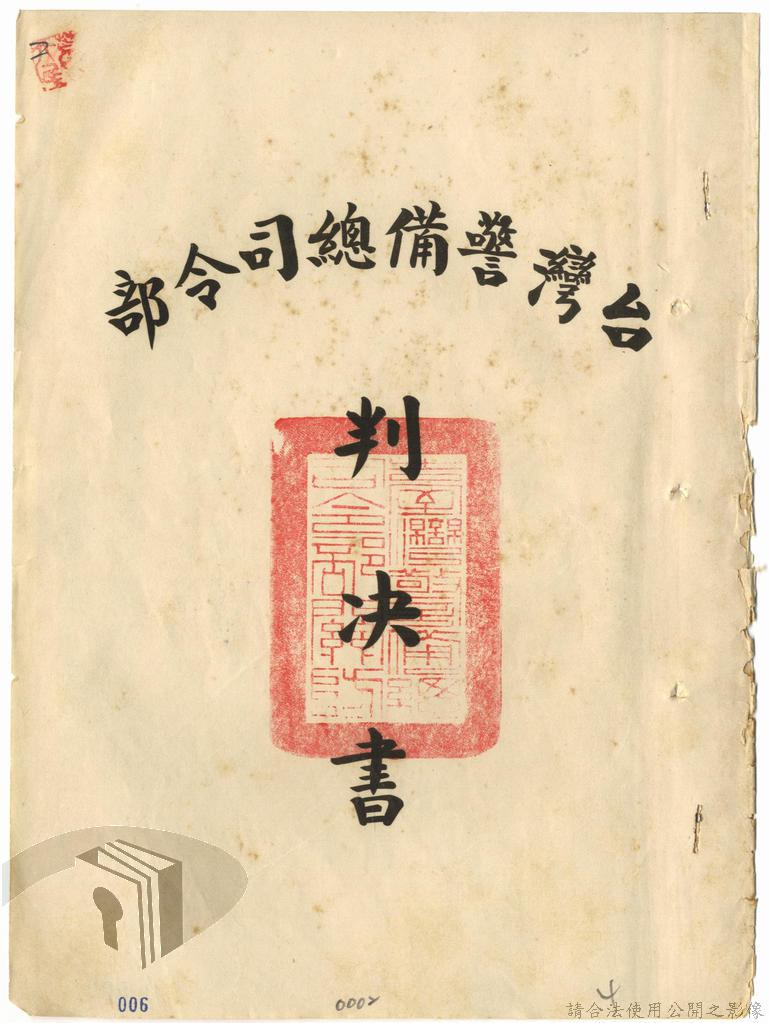 台灣警備總司令部
判决書
006
0002
4
請合法使用公開之影像